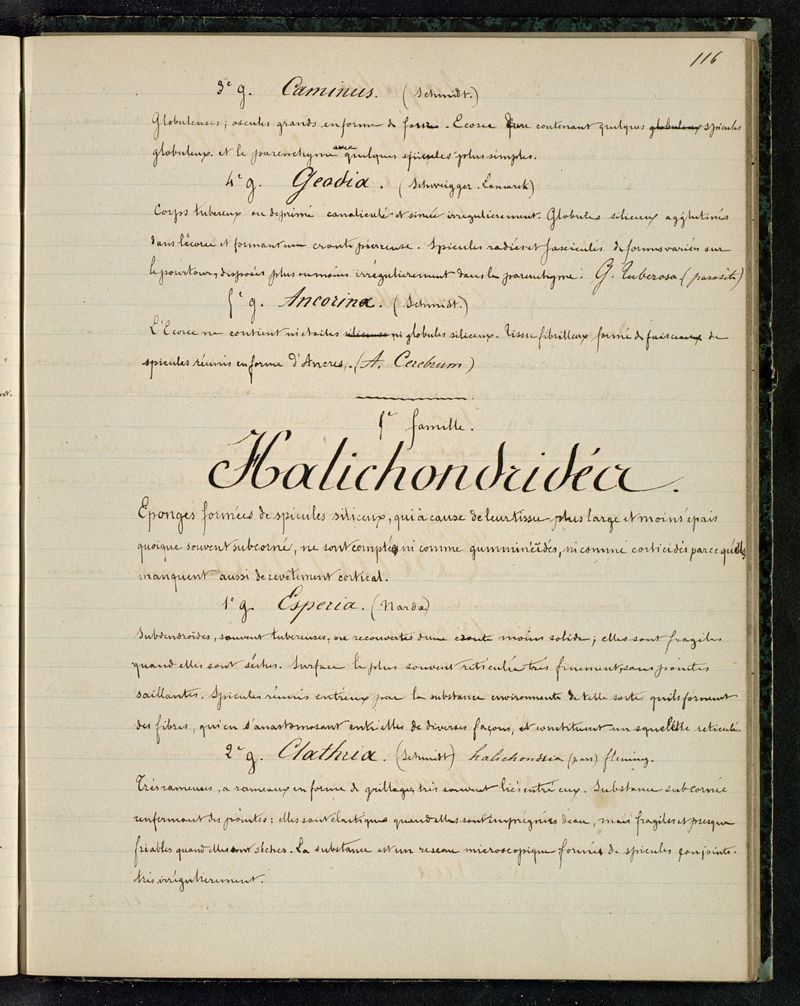 116
3e g. Caminus. (Schmidt.)
Globuleuses; oscules grands en forme de four. Ecorce dure contenant quelques globuleux spicules
globuleux et le parenchyme avec quelques spicules plus simples.
4e g. Geodia. (Schweigger. Lamarck)
Corps tubereux ou deprimé canaliculé et sinuée irregulierement. Globules siliceux agglutinés
dans l'écorce et formant une croute pierreuse. Spicules radiés et fasciculés de formes variées sur
le pourtour, disposés plus ou moins irrégulierement dans le parenchyme. G. tuberosa (parasite)
5e g. Ancorina. (Schmidt.)
L'Ecorce ne contient ni etoiles siliceuse ni globules siliceux. Tissu fibrilleux formé de faisceaux de
spicules réunis en forme d'Ancres. (A. Cerebrum)
5e famille.
Halichondridéa.
Eponges formées de spicules siliceux, qui à cause de leur tissu plus large et moins épais
quoique souvent subcorné, ne sont comptés ni comme gumminéïdes, ni comme corticidés parce qu'elles
manquent aussi de revêtement cortical.
1e g. Esperia. (Nardo)
Subdendroïdes, souvent tubereuses, ou recouvertes d'une croute moins solide; elles sont fragiles
quand elles sont séches. Surface le plus souvent reticulée très finement, sans pointes
saillantes. Spicules réunis entr'eux par la substance environnante de telle sorte qu'ils forment
des fibres, qui en s'anastomosant entr'elles de diverses façons, et constituent un squelette reticulé.
2e g. Clathria. (Schmidt) halichondria (pars) fleming.
Tres rameuses, a rameaux en forme de grillages, très souvent liés entre eux. Substance subcornée
renfermant des pointes: elles sont élastiques quand elles sont imprégnées d'eau, mais fragiles et presque
friables quand elles sont séches. La substance est un reseau microscopique formé de spicules conjointes
très irrégulierement.